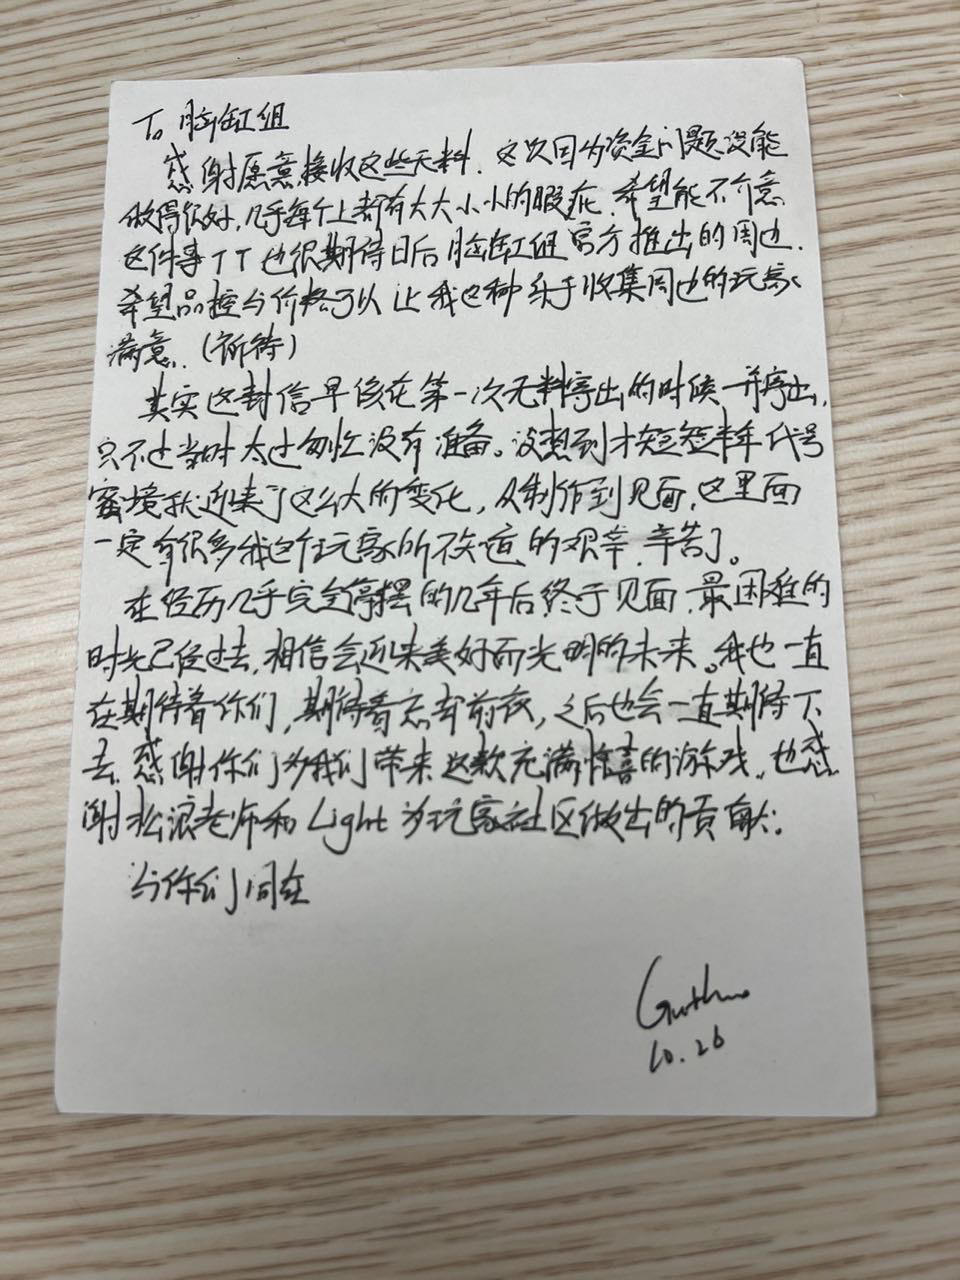 To 脑缸组
感谢愿意接收这些无料．这次因为资金问题没能
做得很好，几乎每个上都有大大小小的瑕疵．希望能不介意
这件事TT 也很期待日后脑缸组官方推出的周边．
希望品控与价格可以让我这种乐于收集周边的玩家
满意．（祈祷）
其实这封信早该在第一次无料寄出的时候一并寄出，
只不过当时太过匆忙没有准备。没想到才短短半年代号
蜜境就迎来了这么大的变化，从制作到见面，这里面
一定有很多我这个玩家所不知道的艰辛，辛苦了。
在经历几乎完全停摆的几年后终于见面，最困难的
时光已经过去，相信会迎来美好而光明的未来。我也一直
在期待着你们，期待着忘却前夜，之后也会一直期待下
去．感谢你们为我们带来这款充满惊喜的游戏，也感
谢松浪老师和Light为玩家社区做出的贡献。
与你们同在
10.26